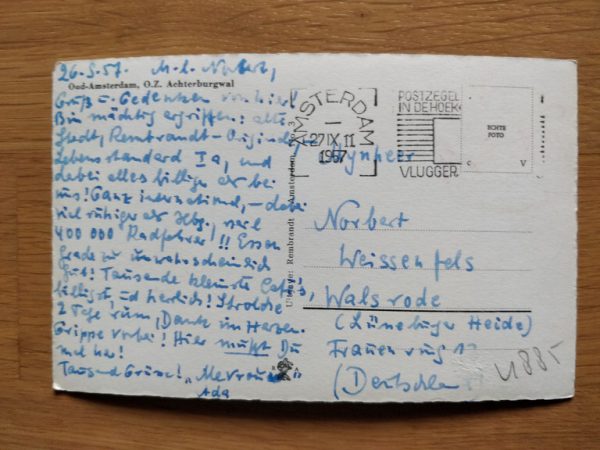 26.9.57. M. l. Norbert,
Oud-Amsterdam, O.Z. Achterburgwal
Gruß u. Gedenken von hier!
Bin mächtig ergriffen: alte
Stadt, Rembrandt-Originale,
Lebensstandard Ia, und
dabei alles billiger als bei
uns! Ganz international, – dabei
viel ruhiger als Hbg., weil
400 000 Radfahrer!! Essen
grade zu unwahrscheinlich
gut! Tausende kleinste Cafés,
billigst, und herrlich! Strolche
2 Tage rum, Dank im Herzen.
Grippe vorbei! Hier mußt Du
mal her!
Tausend Grüße! „Mevrouw"
Ada
Uitgave: Rembrandt - Amsterdam
AMSTERDAM
27 IX 11
1957
POSTZEGEL
IN DE HOEK
VLUGGER
ECHTE
FOTO
C V
Mynheer
Norbert
Weissenfels
Walsrode
(Lüneburger Heide)
(Deutschland)